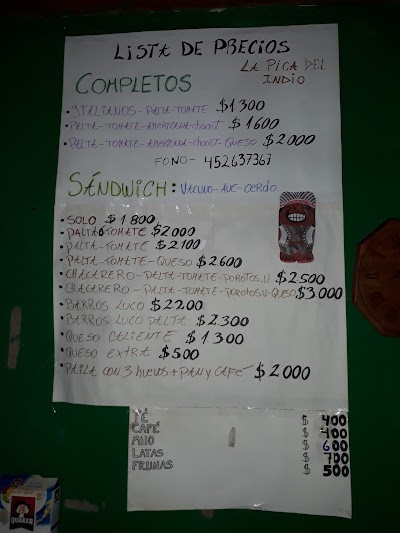 LISTA DE PRECIOS
LA PICA DEL
INDIO
COMPLETOS
• ITALIANOS - PALTA-TOMATE $1300
• PALTA-TOMATE-AMERICANA-chucrt $1600
• PALTA-TOMATE-AMERICANA-chucrt-QUESO $2000
FONO - 452637369
SÁNDWICH: VACUNO-AVE-CERDO
• SOLO $1800
• PALTA Ó TOMATE $2000
• PALTA-TOMATE $2100
• PALTA-TOMATE-QUESO $2600
• CHACARERO - PALTA-TOMATE-POROTOS.V $2.500
• CHACARERO - PALTA-TOMATE-POROTOS.V-QUESO $3000
• BARROS LUCO $2200
• BARROS LUCO PALTA $2.300
• QUESO CALIENTE $1300
• QUESO EXTRA $500
• PAILA CON 3 huevos + PAN y CAFÉ $2000
TÉ $ 400
CAFÉ $ 400
MILO $ 600
LATAS $ 700
FRUNAS $ 500
QUAKER